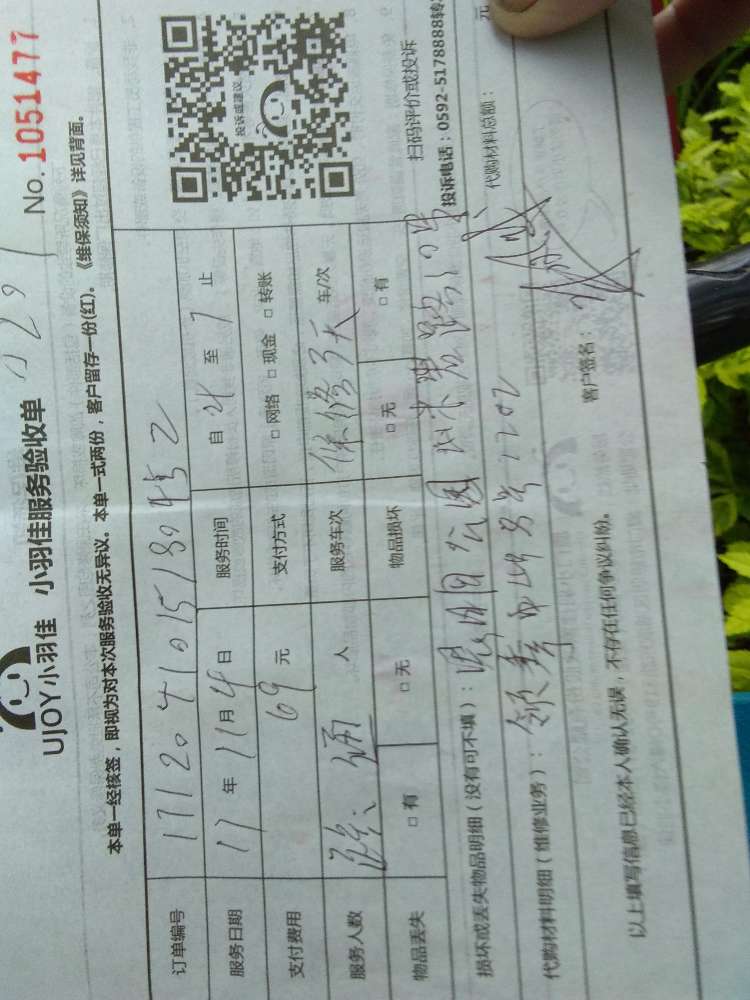 UJOY小羽佳 小羽佳服务验收单 No.1051477
本单一经核签，即视为对本次服务验收无异议。本单一式两份，客户留存一份(红)。《维保须知》详见背面。
订单编号
服务日期 17 年 11 月 日 服务时间 自 至 7 止
支付费用 69 元 支付方式 □ 网络 □ 现金 □ 转账
服务人数 人 服务车次 保修3天 车/次
物品丢失 □ 有 □ 无 物品损坏 □ 无 □ 有
投诉或建议
扫码评价或投诉
投诉电话：0592-5178888转
损坏或丢失物品明细（没有可不填）： 公园
代购材料明细（维修业务）： 领秀 号 1702 代购材料总额： 元
以上填写信息已经本人确认无误，不存在任何争议纠纷。 客户签名：